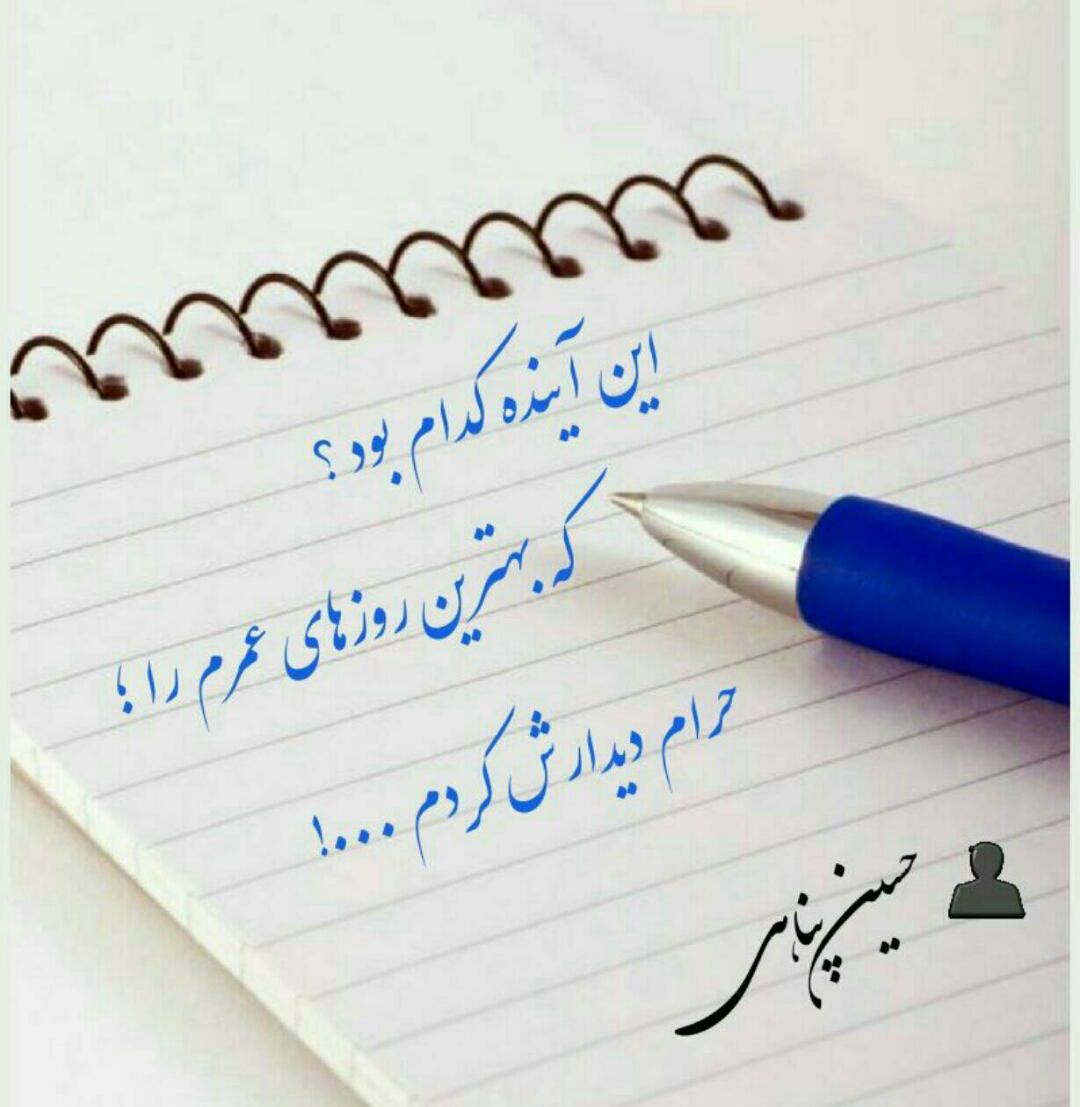 این آینده کدام بود ؟
که بهترین روزهای عمرم را ؛
حرام دیدارش کردم ....!
حسین پناهی